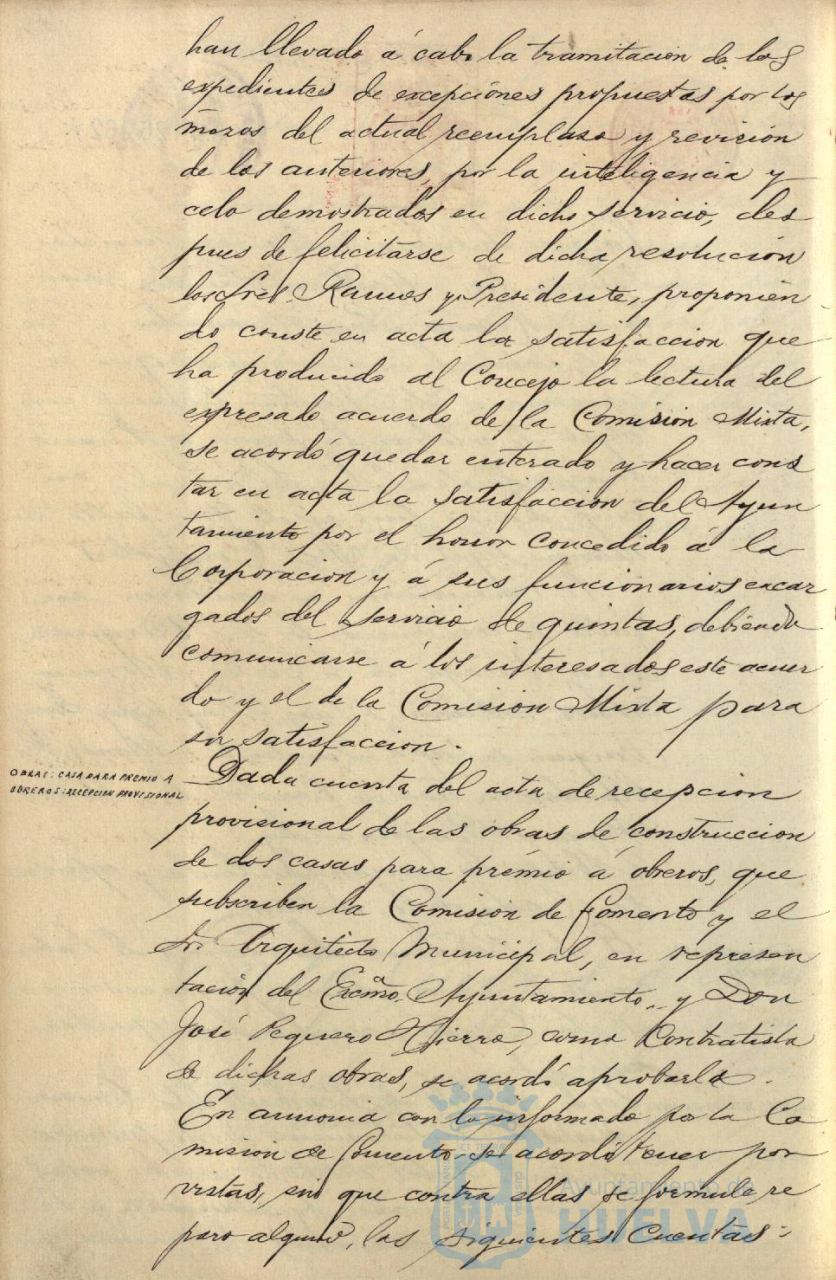 han llevado á cabo la tramitacion de los
expedientes de excepciónes propuestas por los
mozos del actual reemplazo y revision
de los anteriores, por la inteligencia y
celo demostrados en dicho servicio, des
pues de felicitarse de dicha resolucion
los Sres. Ramos y Presidente, proponien
do conste en acta la satisfaccion que
ha producido al Concejo la lectura del
expresado acuerdo de la Comision Mixta,
se acordó quedar enterado y hacer cons
tar en acta la satisfaccion del Ayun
tamiento por el honor concedido á la
Corporacion y á sus funcionarios encar
gados del servicio de quintas, debiendo
comunicarse á los interesados este acuer
do y el de la Comision Mixta para
su satisfaccion.
OBRAS: CASA PARA PREMIO A
OBREROS: RECEPCION PROVISIONAL
Dada cuenta del acta de recepcion
provisional de las obras de construccion
de dos casas para prémio á obreros, que
subscriben la Comisión de Fomento y el
Sr. Arquitecto Municipal, en represen
tación del Excmo. Ayuntamiento, y Don
José Peguero Hierro, como Contratista
de dichas obras, se acordó aprobarla.
En armonia con lo informado por la Co
mision de Fomento se acordó tener por
vistas, sin que contra ellas se formule re
paro alguno, las siguientes cuentas:
Ayuntamiento de
HUELVA